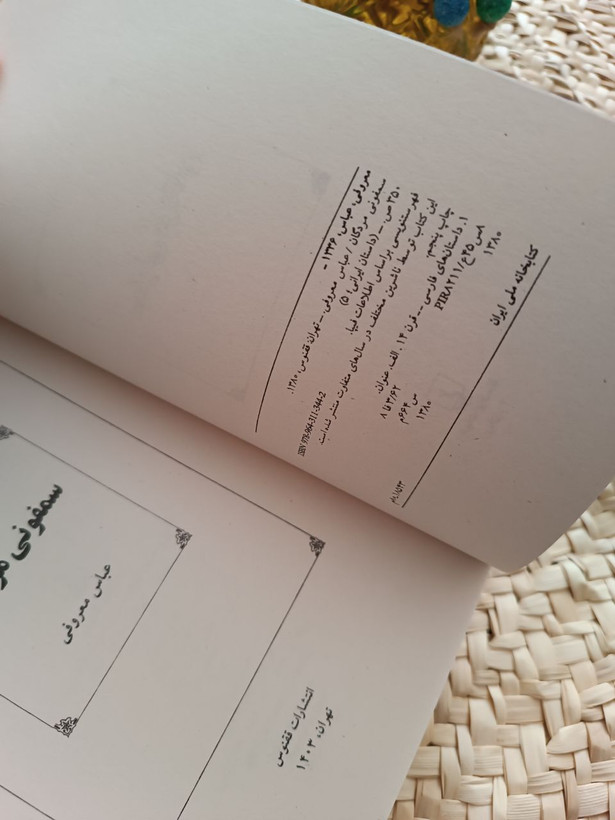 معروفی، عباس، ۱۳۳۶ -
سمفونی مردگان / عباس معروفی. - تهران: ققنوس، ۱۳۸۰.
۳۵۰ ص. - (داستان ایرانی؛ ۵)
ISBN 978-964-311-344-2
فهرستنویسی براساس اطلاعات فیپا.
این کتاب توسط ناشرین مختلف در سال‌های متفاوت منتشر شده است.
چاپ پنجم.
۱. داستان‌های فارسی -- قرن ۱۴. الف. عنوان.
PIR۸۲۱۱/ع۴۵س۸ ۸فا۳/۶۲
۱۳۸۰ س م۶۶۴
۱۳۸۰
کتابخانه ملی ایران
سمفونی
عباس معروفی
انتشارات ققنوس
تهران، ۱۴۰۳